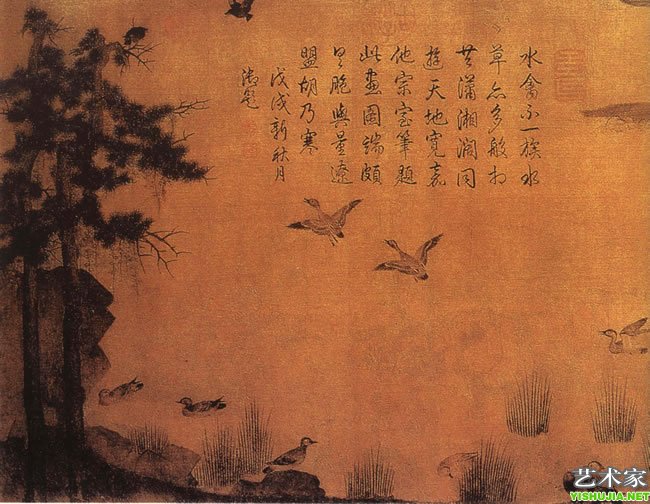 水禽不一族水
草亦多般相
共瀟湘濶同
遊天地寬嘉
他宗室筆題
此畫圖端頗
與量遼
盟胡乃寒
戊戌新秋月
御題
艺术家
YISHUJIA.NET